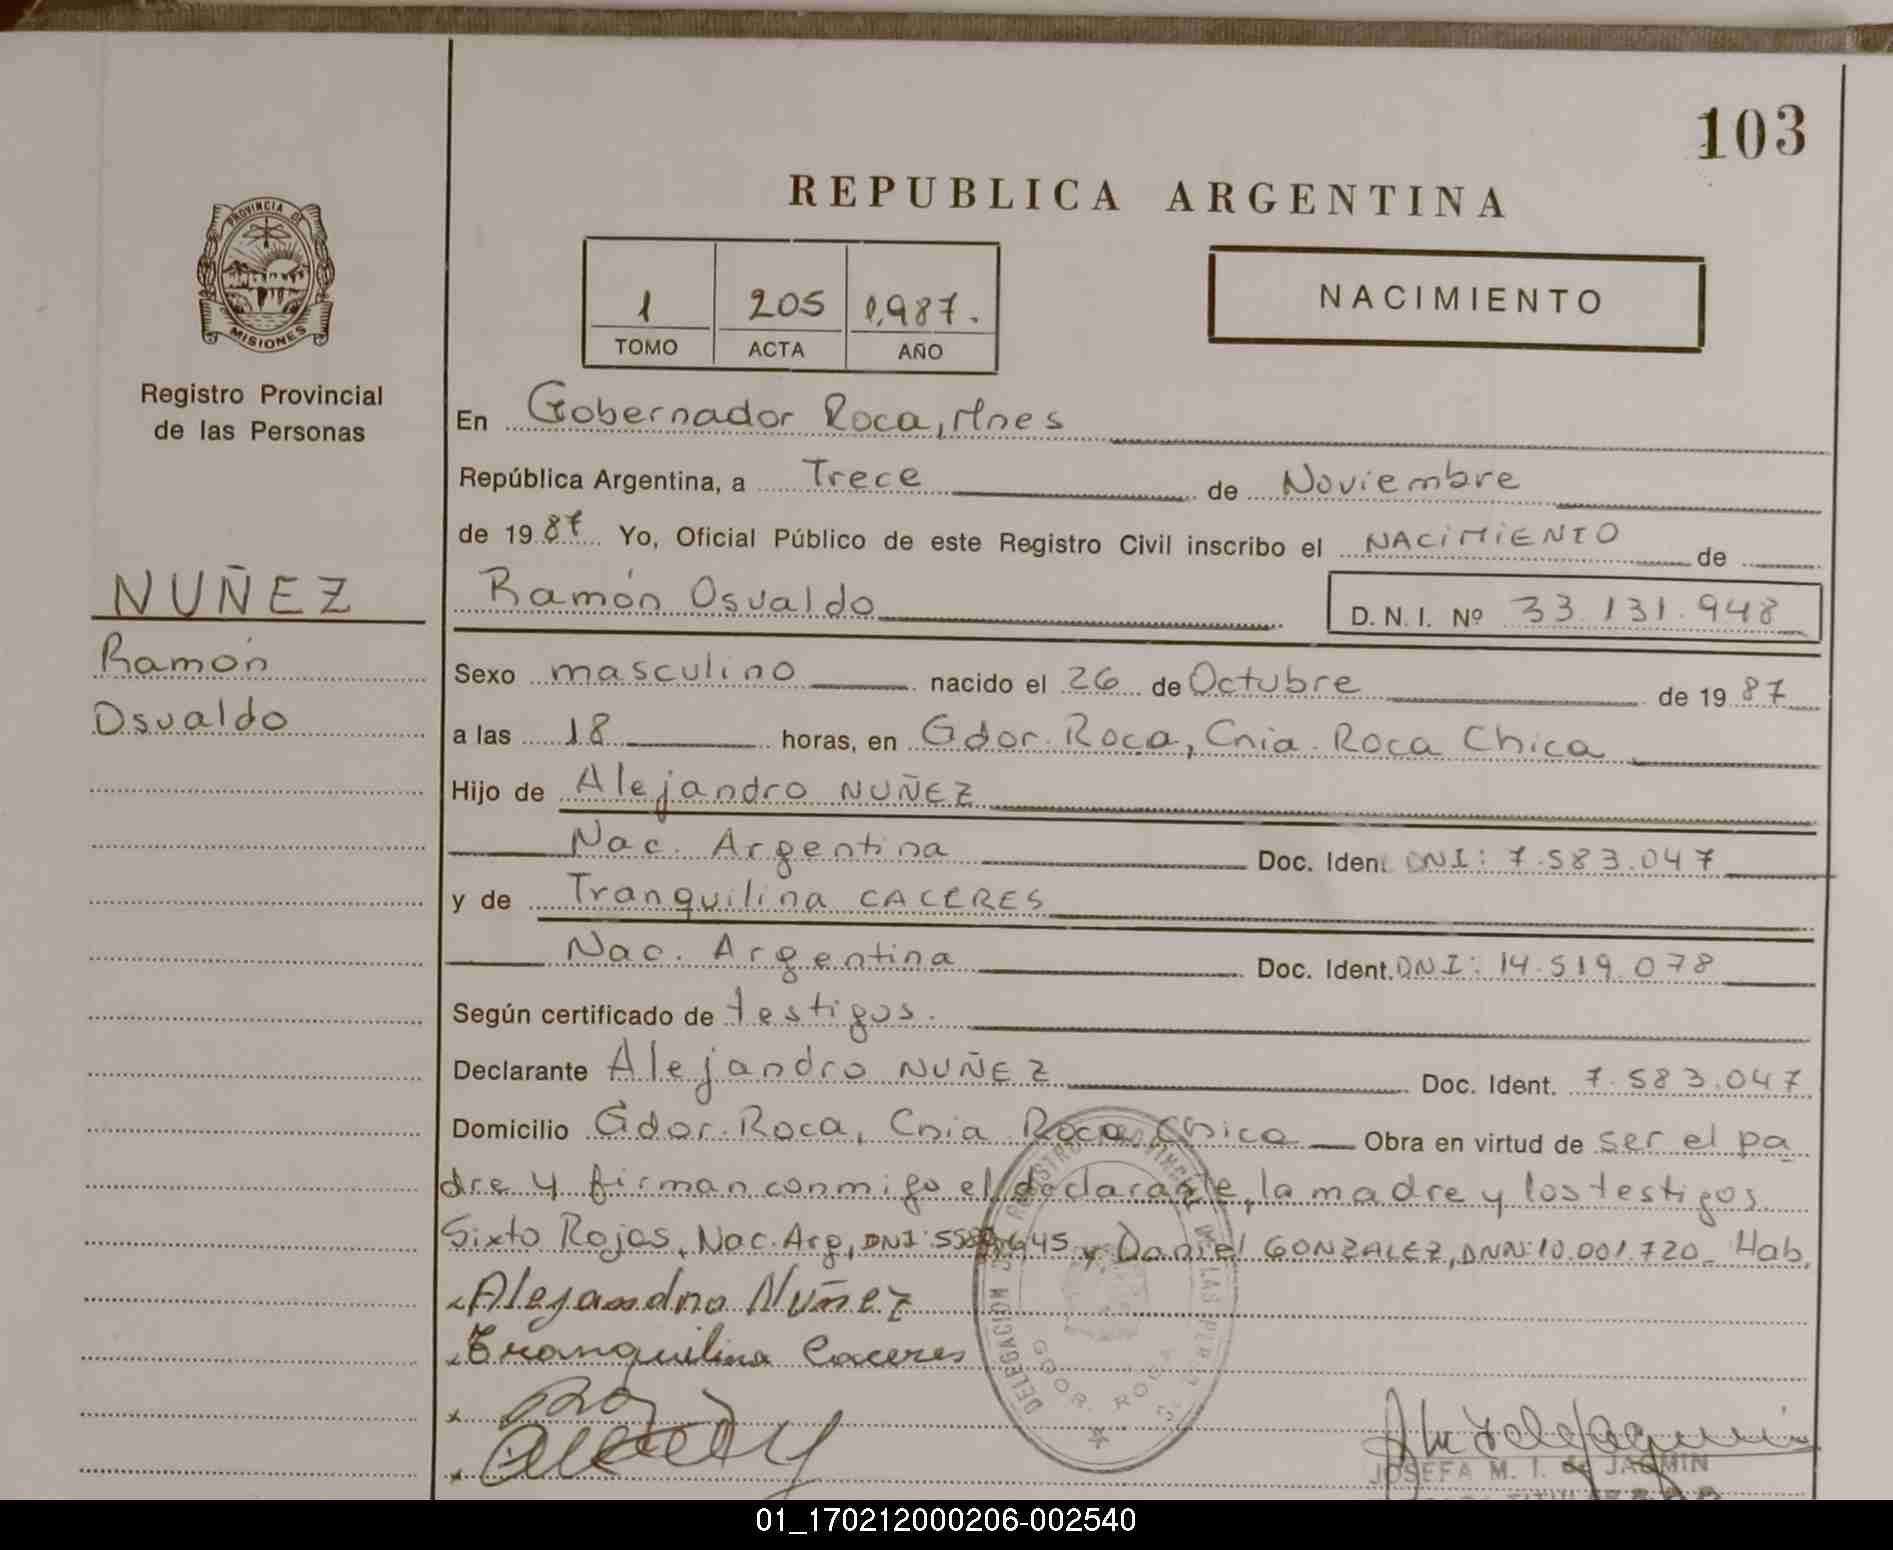 103
REPUBLICA ARGENTINA
PROVINCIA DE
MISIONES
1 205 1,987.
TOMO ACTA AÑO
NACIMIENTO
Registro Provincial
de las Personas
NUÑEZ
Ramón
Osvaldo
En Gobernador Roca, Mnes
República Argentina, a Trece de Noviembre
de 1987 Yo, Oficial Público de este Registro Civil inscribo el NACIMIENTO de
Ramón Osvaldo D. N. I. Nº 33.131.948
Sexo masculino nacido el 26 de Octubre de 1987
a las 18 horas, en Gdor. Roca, Cnia. Roca Chica
Hijo de Alejandro NUÑEZ
Nac. Argentina Doc. Ident. DNI: 7.583.047
y de Tranquilina CACERES
Nac. Argentina Doc. Ident. DNI: 14.519.078
Según certificado de testigos.
Declarante Alejandro NUÑEZ Doc. Ident. 7.583.047
Domicilio Gdor. Roca, Cnia Roca Chica Obra en virtud de ser el pa
dre y firman conmigo el declarante, la madre y los testigos
Sixto Rojas, Nac. Arg, DNI: y Daniel GONZALEZ, DNN: 10.001.720_ Hab.
Alejandro Nuñez
Tranquilina Caceres
GDOR. ROCA
JOSEFA M. I. de JAQMIN
01_170212000206-002540